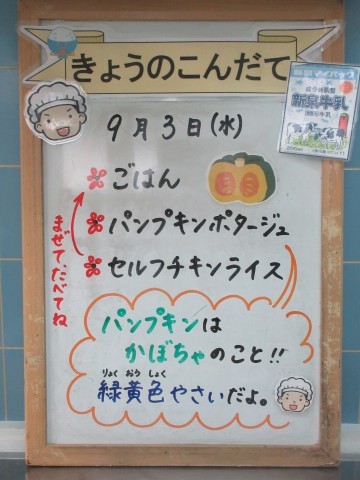 きょうのこんだて
9月3日(水)
ごはん
パンプキンポタージュ
セルフチキンライス
まぜて、たべてね
パンプキンは
かぼちゃのこと!!
りょく おう しょく
緑黄色やさいだよ。
新泉牛乳
200ml